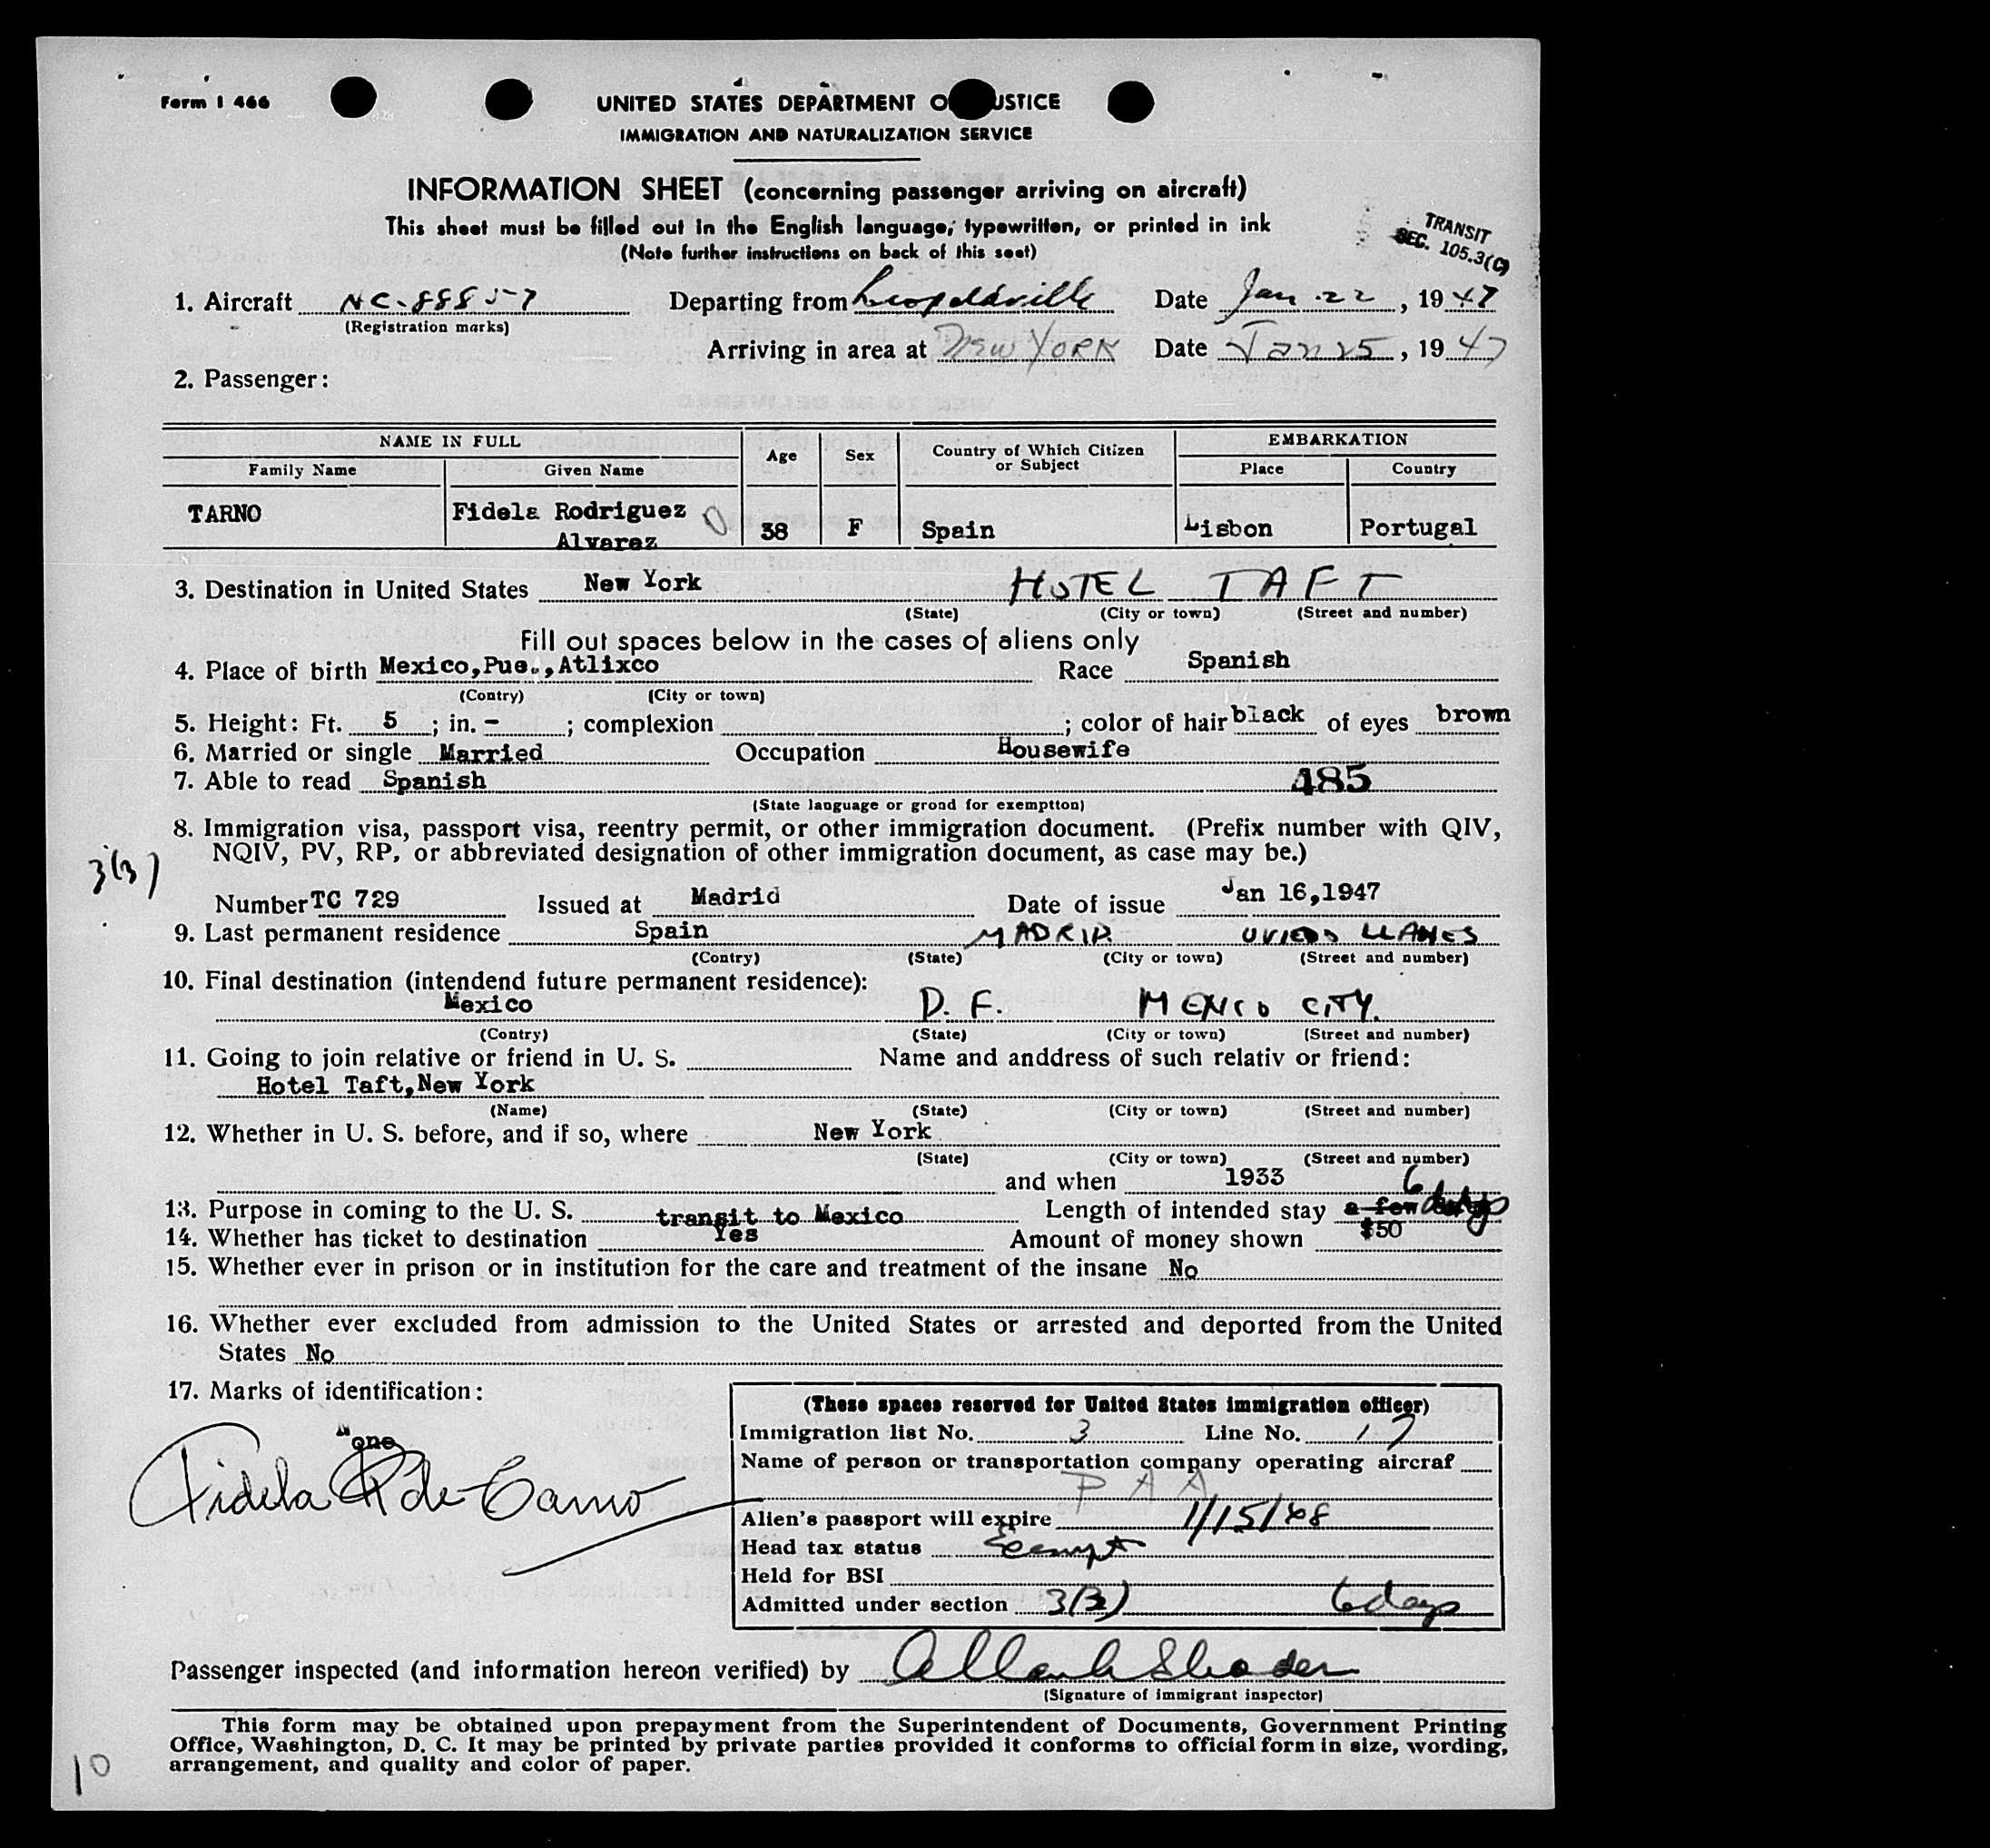 Form I 466
UNITED STATES DEPARTMENT O USTICE
IMMIGRATION AND NATURALIZATION SERVICE
INFORMATION SHEET (concerning passenger arriving on aircraft)
This sheet must be filled out in the English language, typewritten, or printed in ink
(Note further instructions on back of this seet)
TRANSIT
SEC. 105.3(C)
1. Aircraft NC-88857 Departing from Leopoldville Date Jan 22, 1947
(Registration marks)
Arriving in area at New YORK Date Jan 25, 1947
2. Passenger:
NAME IN FULL Age Sex Country of Which Citizen or Subject EMBARKATION
Family Name Given Name Place Country
TARNO Fidela Rodriguez Alvarez 38 F Spain Lisbon Portugal
3. Destination in United States New York HOTEL TAFT
(State) (City or town) (Street and number)
Fill out spaces below in the cases of aliens only
4. Place of birth Mexico,Pue.,Atlixco Race Spanish
(Contry) (City or town)
5. Height: Ft. 5 ; in. - ; complexion ; color of hair black of eyes brown
6. Married or single Married Occupation Housewife
7. Able to read Spanish 485
(State language or grond for exemptton)
8. Immigration visa, passport visa, reentry permit, or other immigration document. (Prefix number with QIV,
NQIV, PV, RP, or abbreviated designation of other immigration document, as case may be.)
3(3)
Number TC 729 Issued at Madrid Date of issue Jan 16,1947
9. Last permanent residence Spain MADRID OVIEDO LLANES
(Contry) (State) (City or town) (Street and number)
10. Final destination (intendend future permanent residence):
Mexico D. F. MEXICO CITY.
(Contry) (State) (City or town) (Street and number)
11. Going to join relative or friend in U. S. Name and anddress of such relativ or friend:
Hotel Taft,New York
(Name) (State) (City or town) (Street and number)
12. Whether in U. S. before, and if so, where New York
(State) (City or town) (Street and number)
and when 1933
13. Purpose in coming to the U. S. transit to Mexico Length of intended stay a few 6 days
14. Whether has ticket to destination Yes Amount of money shown $50
15. Whether ever in prison or in institution for the care and treatment of the insane No
16. Whether ever excluded from admission to the United States or arrested and deported from the United
States No
17. Marks of identification:
None
Fidela R de Tarno
(These spaces reserved for United States immigration officer)
Immigration list No. 3 Line No. 17
Name of person or transportation company operating aircraf
PAA
Alien's passport will expire 1/15/48
Head tax status Exempt
Held for BSI
Admitted under section 3(3) 6 days
Passenger inspected (and information hereon verified) by
(Signature of immigrant inspector)
This form may be obtained upon prepayment from the Superintendent of Documents, Government Printing
Office, Washington, D. C. It may be printed by private parties provided it conforms to official form in size, wording,
arrangement, and quality and color of paper.
10